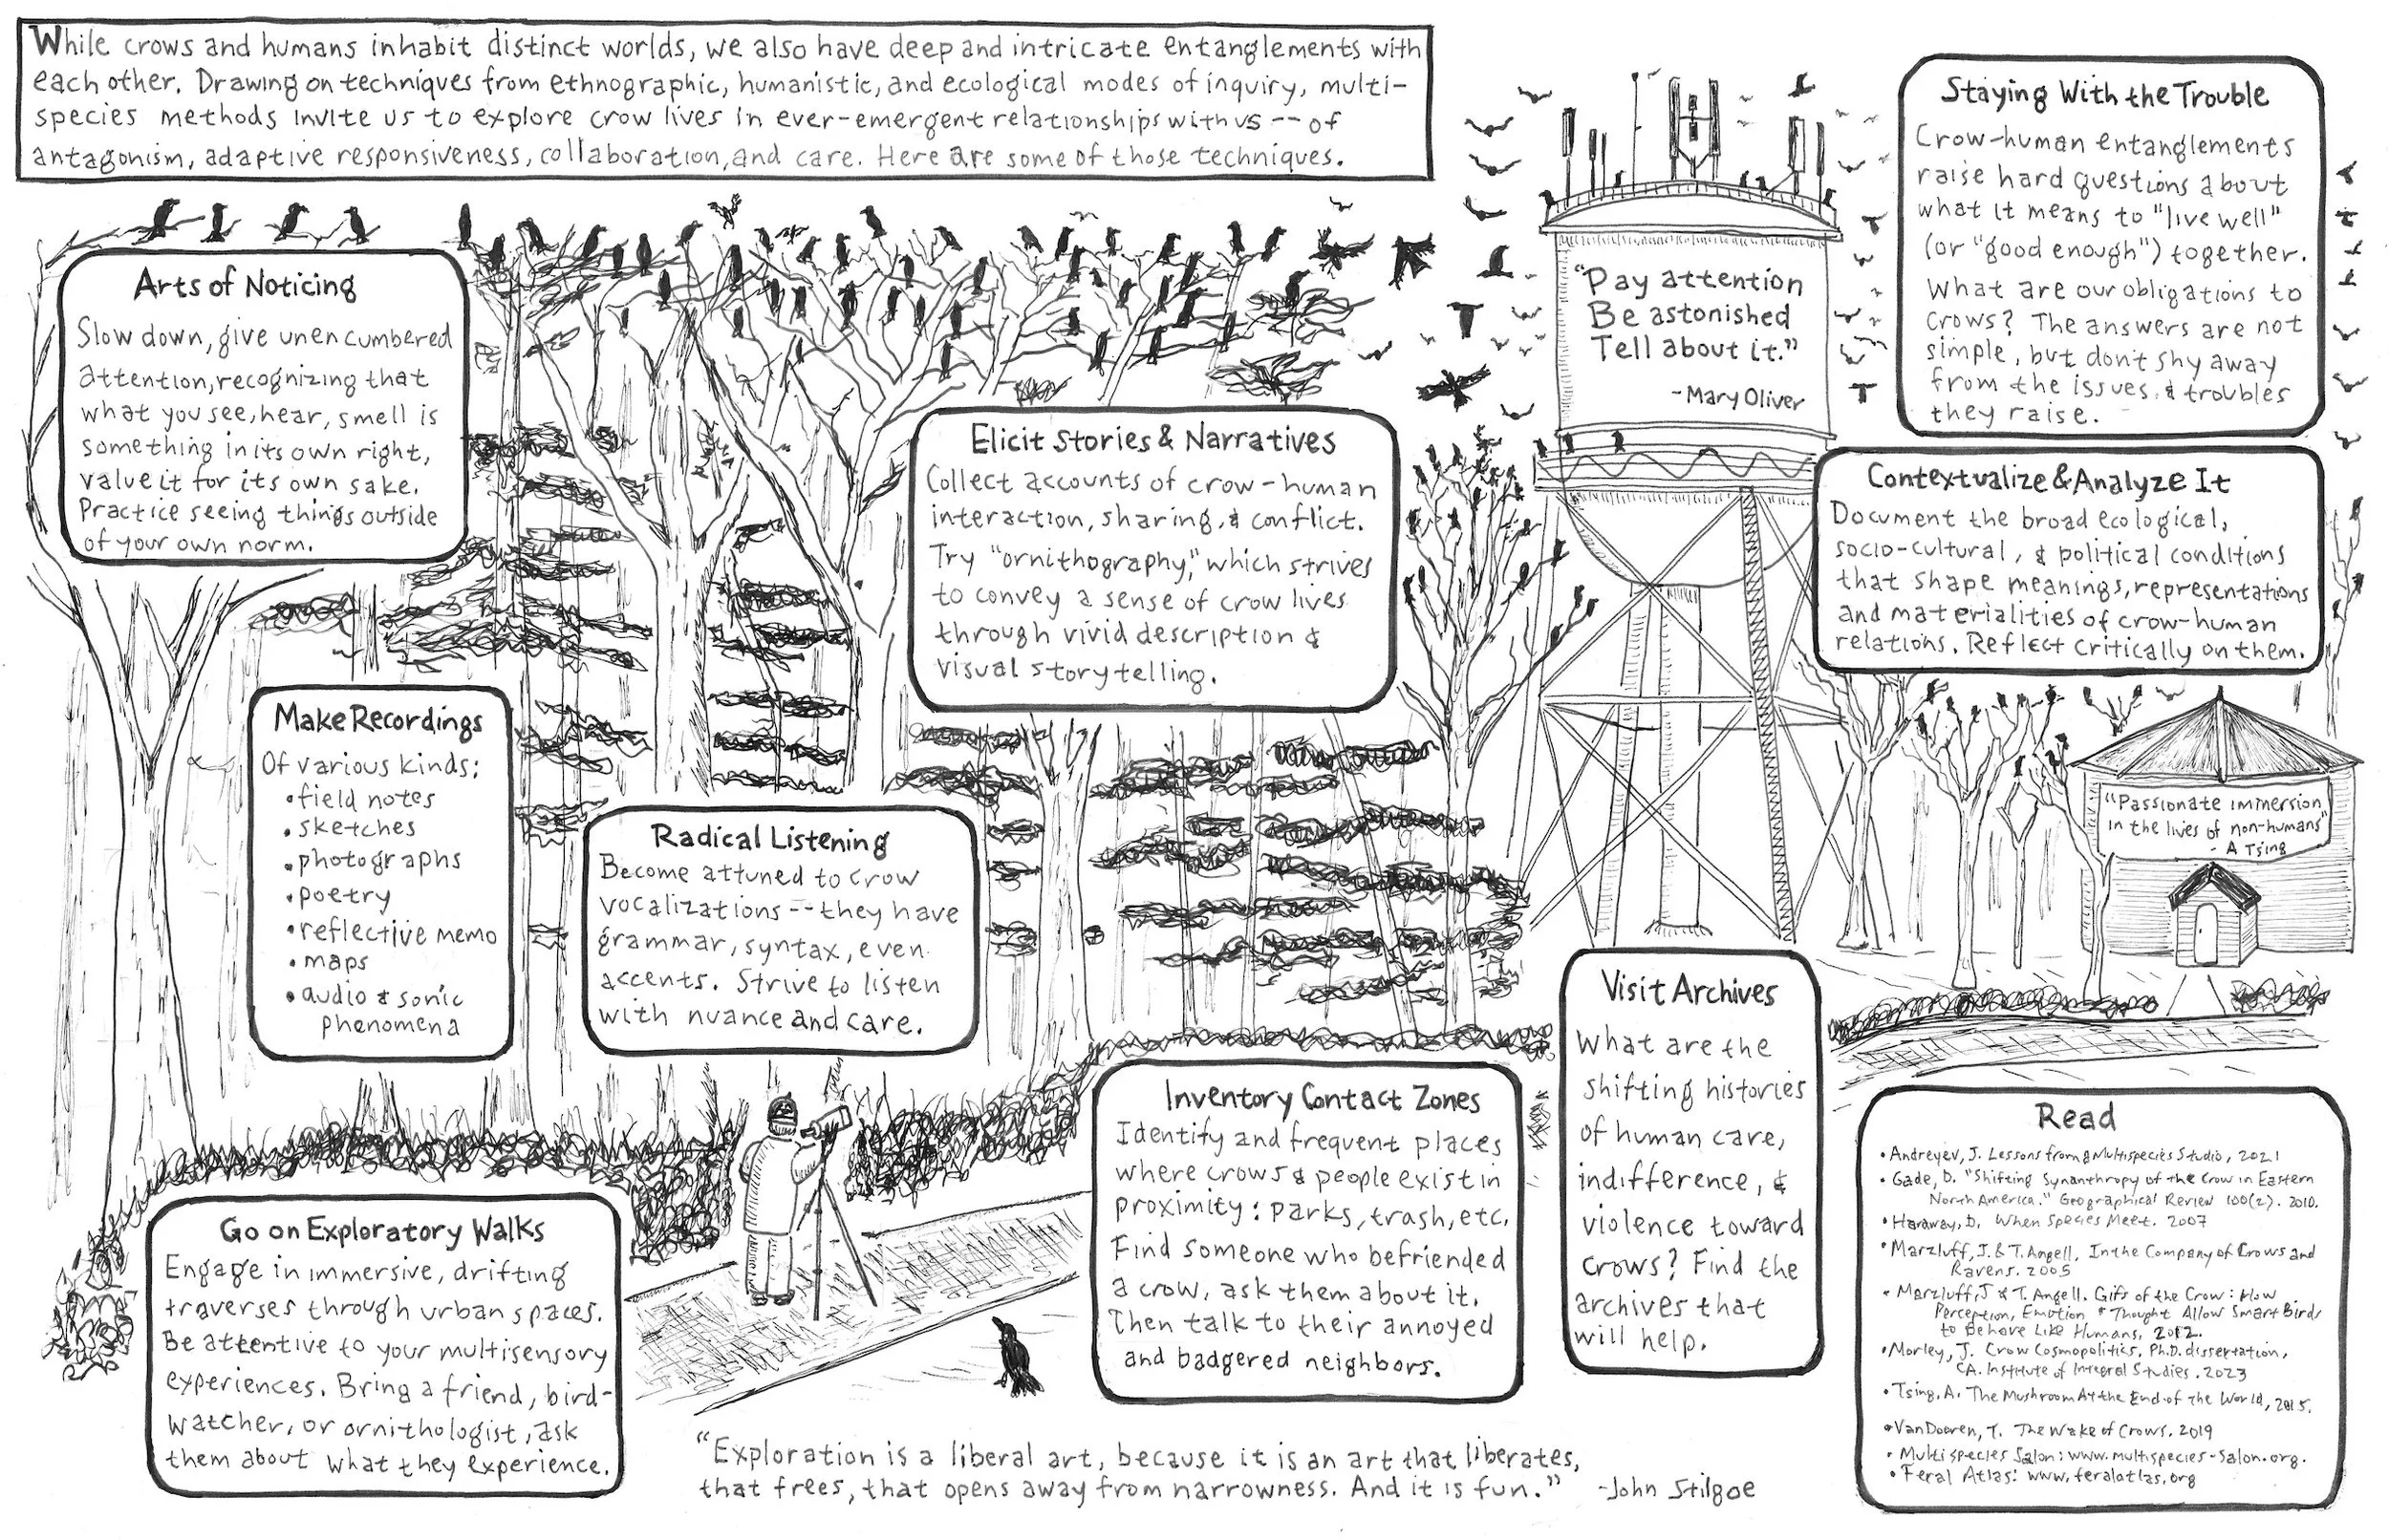 While crows and humans inhabit distinct worlds, we also have deep and intricate entanglements with
each other. Drawing on techniques from ethnographic, humanistic, and ecological modes of inquiry, multi-
species methods invite us to explore crow lives in ever-emergent relationships with us -- of
antagonism, adaptive responsiveness, collaboration, and care. Here are some of those techniques.
Arts of Noticing
Slow down, give unencumbered
attention, recognizing that
what you see, hear, smell is
something in its own right,
value it for its own sake.
Practice seeing things outside
of your own norm.
Make Recordings
Of various kinds:
• field notes
• sketches
• photographs
• poetry
• reflective memo
• maps
• audio & sonic
phenomena
Radical Listening
Become attuned to crow
vocalizations -- they have
grammar, syntax, even
accents. Strive to listen
with nuance and care.
Elicit Stories & Narratives
Collect accounts of crow-human
interaction, sharing, & conflict.
Try "ornithography," which strives
to convey a sense of crow lives
through vivid description &
visual storytelling.
"Pay attention
Be astonished
Tell about it."
- Mary Oliver
Staying With the Trouble
Crow-human entanglements
raise hard questions about
what it means to "live well"
(or "good enough") together.
What are our obligations to
crows? The answers are not
simple, but don't shy away
from the issues & troubles
they raise.
Contextualize & Analyze It
Document the broad ecological,
socio-cultural, & political conditions
that shape meanings, representations
and materialities of crow-human
relations. Reflect critically on them.
"Passionate immersion
in the lives of non-humans"
- A Tsing
Go on Exploratory Walks
Engage in immersive, drifting
traverses through urban spaces.
Be attentive to your multisensory
experiences. Bring a friend, bird-
watcher, or ornithologist, ask
them about what they experience.
Inventory Contact Zones
Identify and frequent places
where crows & people exist in
proximity: parks, trash, etc.
Find someone who befriended
a crow, ask them about it.
Then talk to their annoyed
and badgered neighbors.
Visit Archives
What are the
shifting histories
of human care,
indifference, &
violence toward
crows? Find the
archives that
will help.
Read
• Andreyev, J. Lessons from a Multispecies Studio, 2021
• Gade, D. "Shifting Synanthropy of the Crow in Eastern
North America." Geographical Review 100(2). 2010.
• Haraway, D. When Species Meet. 2007
• Marzluff, J. & T. Angell. In the Company of Crows and
Ravens. 2005
• Marzluff, J & T. Angell. Gifts of the Crow: How
Perception, Emotion & Thought Allow Smart Birds
to Behave Like Humans, 2012.
• Morley, J. Crow Cosmopolitics, Ph.D. dissertation,
CA. Institute of Integral Studies. 2023
• Tsing, A. The Mushroom At the End of the World, 2015.
• Van Dooren, T. The Wake of Crows. 2019
• Multispecies Salon: www.multispecies-salon.org.
• Feral Atlas: www.feralatlas.org
"Exploration is a liberal art, because it is an art that liberates,
that frees, that opens away from narrowness. And it is fun."
-John Stilgoe